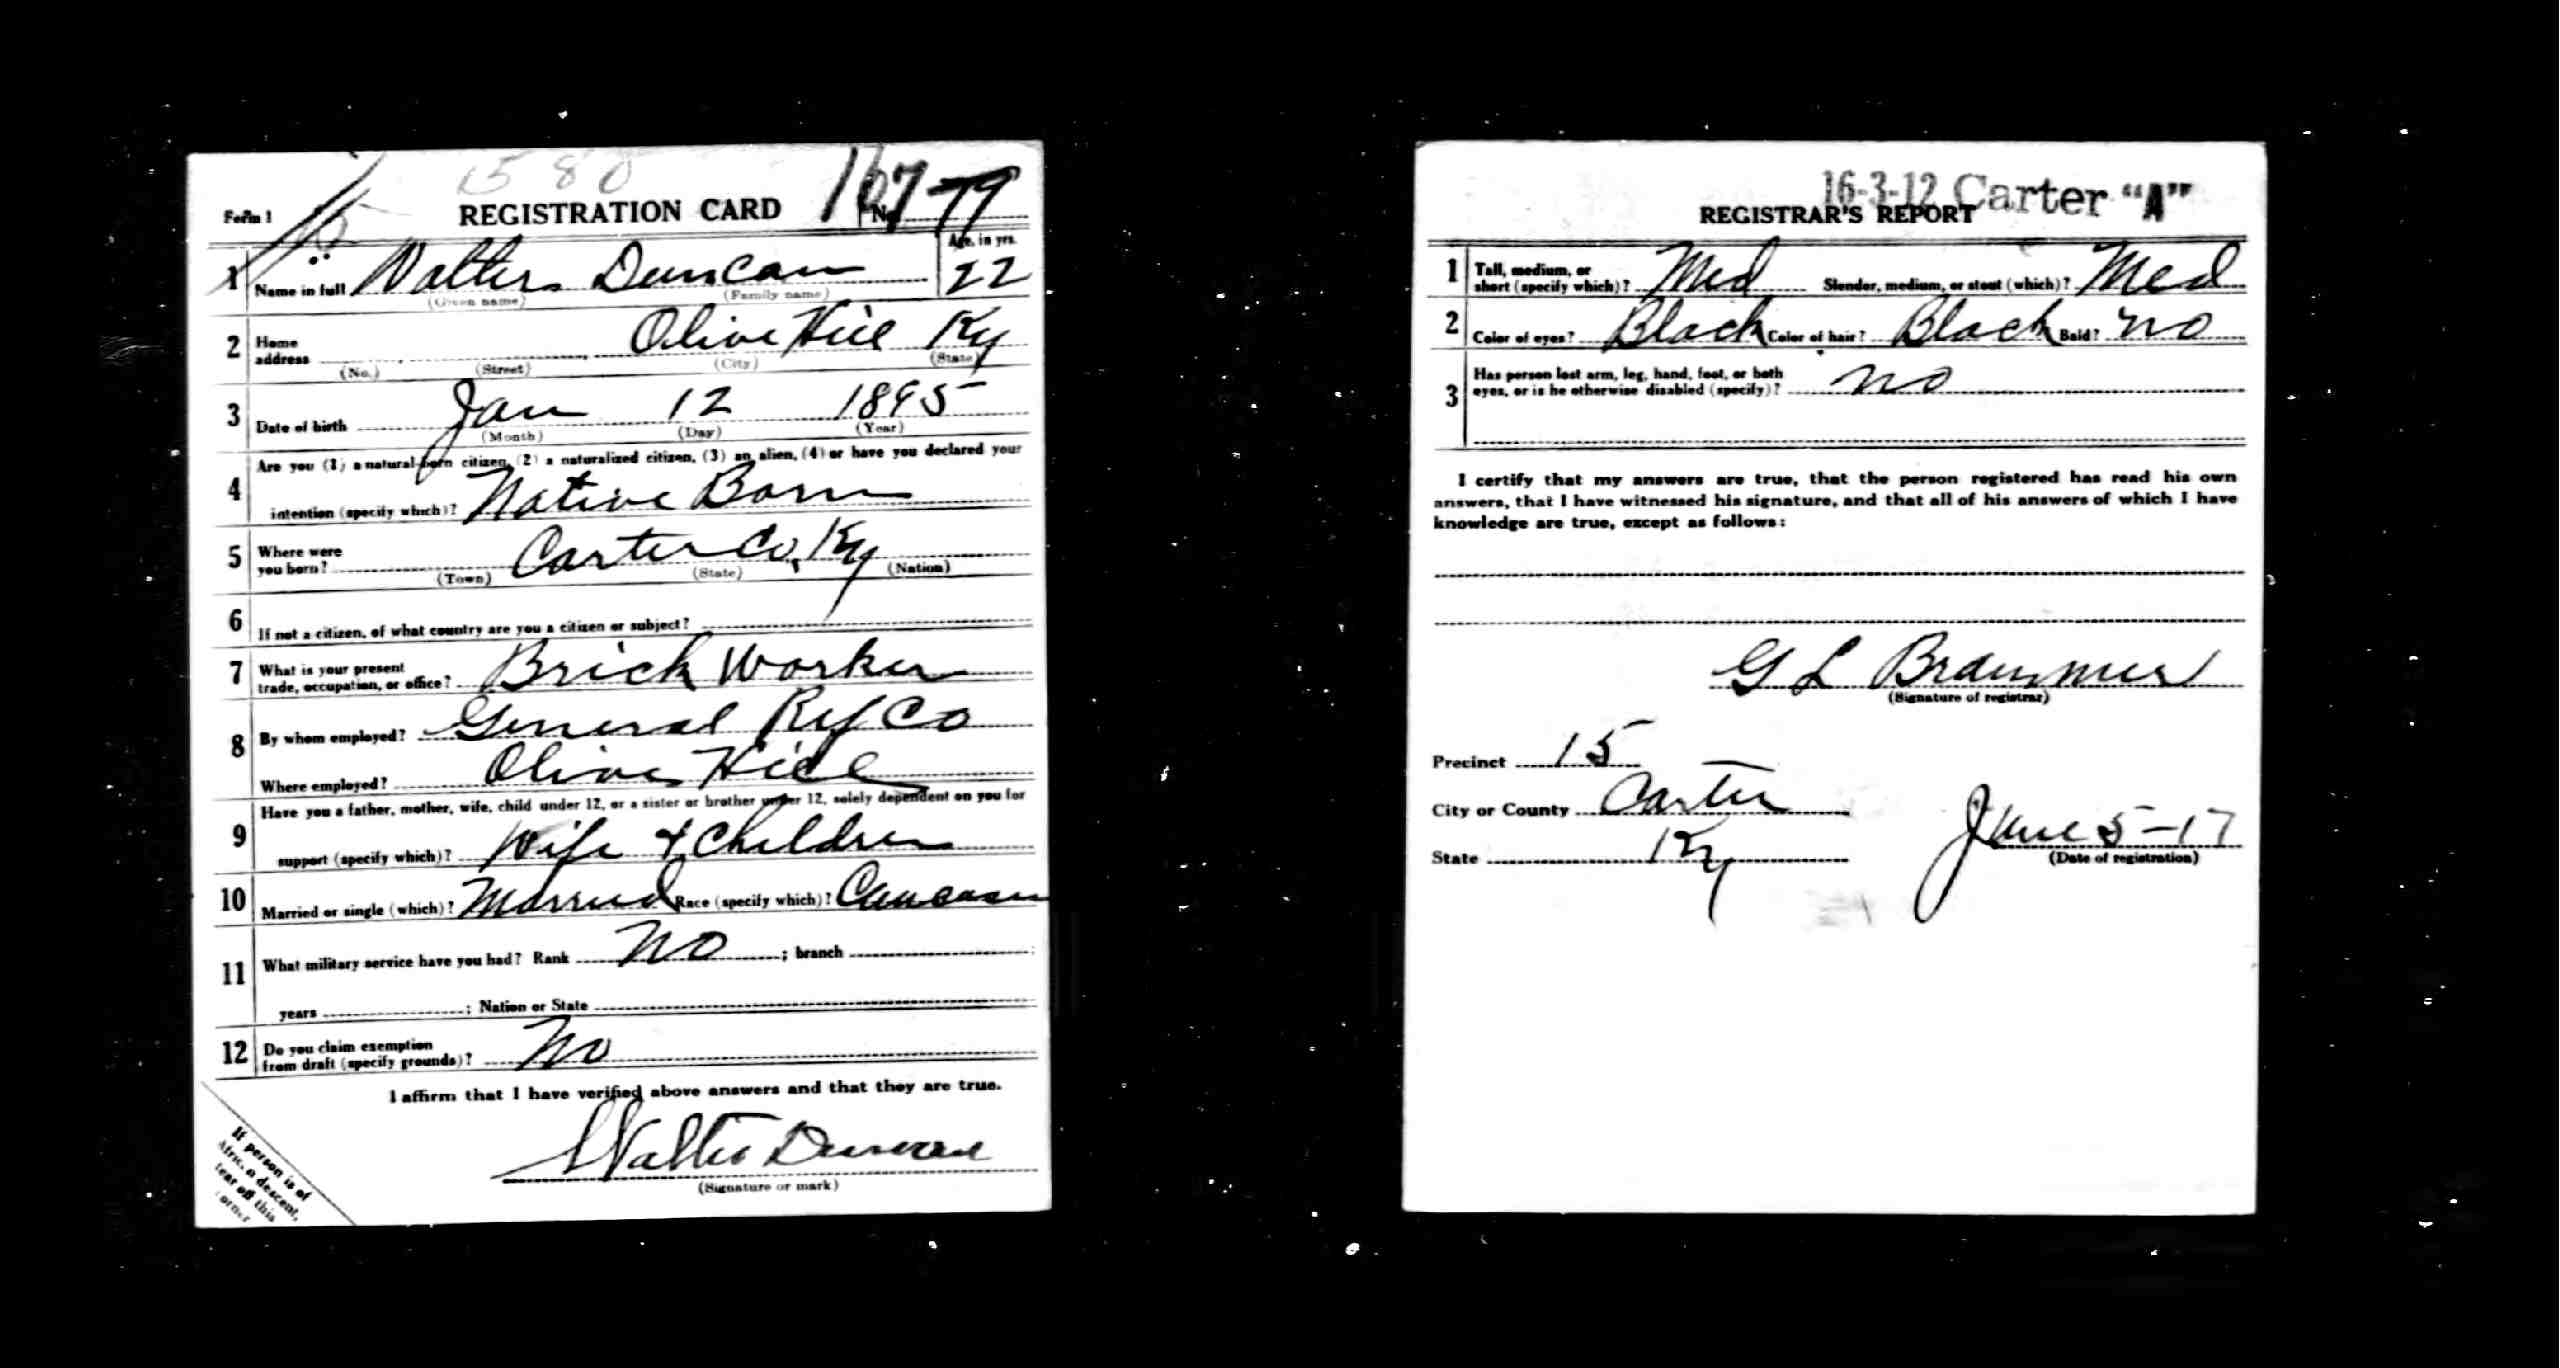 1580
Form 1 REGISTRATION CARD No. 77
167
Age, in yrs.
1 Name in full Walter Duncan 22
(Given name) (Family name)
2 Home address Olive Hill Ky
(No.) (Street) (City) (State)
3 Date of birth Jan 12 1895
(Month) (Day) (Year)
4 Are you (1) a natural-born citizen, (2) a naturalized citizen, (3) an alien, (4) or have you declared your
intention (specify which)? Native Born
5 Where were
you born? Carter Co, Ky
(Town) (State) (Nation)
6 If not a citizen, of what country are you a citizen or subject?
7 What is your present
trade, occupation, or office? Brick Worker
8 By whom employed? General Ref Co
Where employed? Olive Hill
9 Have you a father, mother, wife, child under 12, or a sister or brother under 12, solely dependent on you for
support (specify which)? Wife & Children
10 Married or single (which)? Married Race (specify which)? Caucasin
11 What military service have you had? Rank No ; branch ;
years ; Nation or State
12 Do you claim exemption
from draft (specify grounds)? No
I affirm that I have verified above answers and that they are true.
Walter Duncan
(Signature or mark)
If person is of
African descent,
tear off this
corner
16-3-12 Carter "A"
REGISTRAR'S REPORT
1 Tall, medium, or
short (specify which)? Med Slender, medium, or stout (which)? Med
2 Color of eyes? Black Color of hair? Black Bald? No
3 Has person lost arm, leg, hand, foot, or both
eyes, or is he otherwise disabled (specify)? No
I certify that my answers are true, that the person registered has read his own
answers, that I have witnessed his signature, and that all of his answers of which I have
knowledge are true, except as follows:
G L Brammer
(Signature of registrar)
Precinct 15
City or County Carter
State Ky June 5-17
(Date of registration)